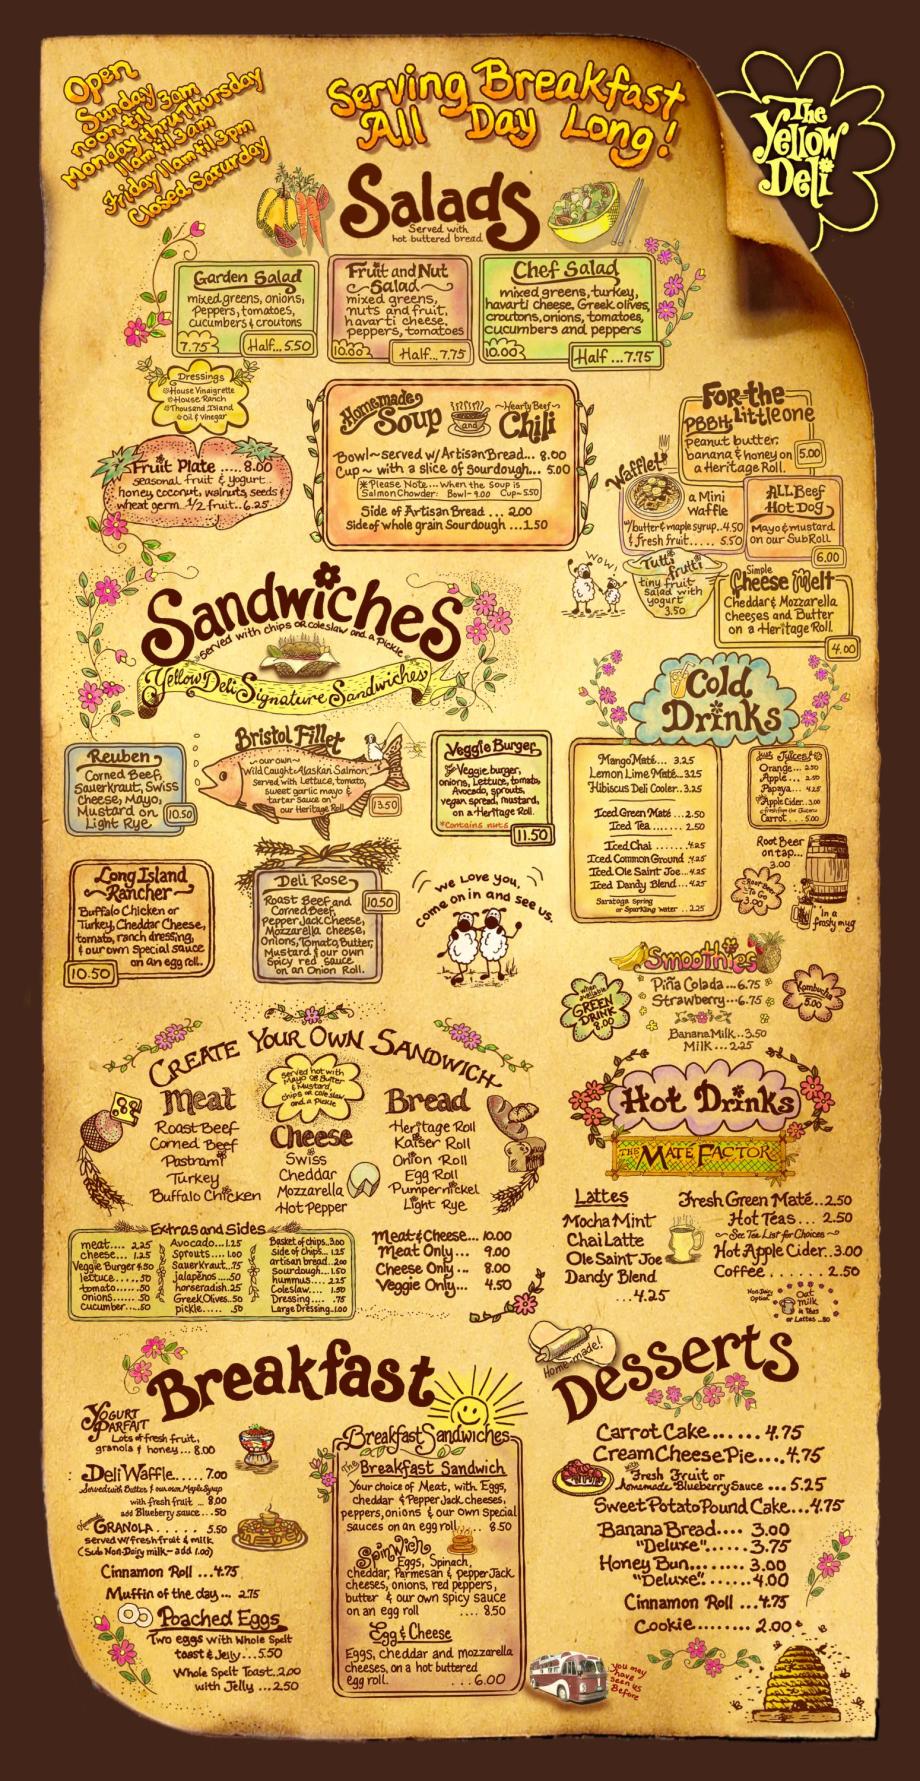 Open
Sunday
noon til 3am
Monday thru Thursday
11am til 3am
Friday 11am til 3pm
Closed Saturday
Serving Breakfast
All Day Long!
The
Yellow
Deli
Salads
Served with
hot buttered bread
Garden Salad
mixed greens, onions,
Peppers, tomatoes,
cucumbers & croutons
7.75 Half...5.50
Fruit and Nut
Salad
mixed greens,
nuts and fruit,
havarti cheese,
peppers, tomatoes
10.00 Half...7.75
Chef Salad
mixed greens, turkey,
havarti cheese, Greek olives,
croutons, onions, tomatoes,
cucumbers and peppers
10.00 Half...7.75
Dressings
House Vinaigrette
House Ranch
Thousand Island
Oil & Vinegar
Fruit Plate ..... 8.00
seasonal fruit & yogurt
honey, coconut, walnuts, seeds &
wheat germ. 1/2 fruit...6.25
Homemade
Soup
and
~Hearty Beef~
Chili
Bowl~served w/Artisan Bread... 8.00
Cup~ with a slice of sourdough... 5.00
*Please Note.... When the soup is
Salmon Chowder: Bowl-9.00 Cup-5.50
Side of Artisan Bread ... 2.00
Side of whole grain Sourdough ...1.50
For the
Little one
PBBH
Peanut butter,
banana & honey on
a Heritage Roll.
5.00
Wafflet
a Mini
Waffle
w/butter & maple syrup..4.50
& fresh fruit..... 5.50
All Beef
Hot Dog
Mayo & mustard
on our Sub Roll
6.00
Wow!
Tutti
frutti
tiny fruit
salad with
yogurt
3.50
Simple
Cheese Melt
Cheddar & Mozzarella
cheeses and Butter
on a Heritage Roll.
4.00
Sandwiches
Served with chips or coleslaw and a pickle
Yellow Deli Signature Sandwiches
Reuben
Corned Beef,
Sauerkraut, Swiss
Cheese, Mayo,
Mustard on
Light Rye
10.50
Bristol Fillet
~our own~
Wild Caught Alaskan Salmon,
Served with Lettuce, tomato,
sweet garlic mayo &
tartar sauce on
our Heritage Roll
13.50
Veggie Burger
Veggie burger,
onions, Lettuce, tomato,
Avocado, sprouts,
vegan spread, mustard,
on a Heritage Roll.
*Contains nuts
11.50
Long Island
Rancher
Buffalo Chicken or
Turkey, Cheddar Cheese,
tomato, ranch dressing,
& our own special sauce
on an egg roll.
10.50
Deli Rose
Roast Beef and
Corned Beef,
Pepper Jack Cheese,
Mozzarella cheese,
Onions, Tomato, Butter,
Mustard & our own
Spicy red sauce
on an Onion Roll.
10.50
We Love you,
Come on in and see us.
Cold
Drinks
Mango Maté....3.25
Lemon Lime Maté...3.25
Hibiscus Deli Cooler..3.25
Iced Green Maté ...2.50
Iced Tea ....... 2.50
Iced Chai ....... 4.25
Iced Common Ground .4.25
Iced Ole Saint Joe... 4.25
Iced Dandy Blend....4.25
Saratoga Spring
or Sparkling water ..2.25
Just Juices
Orange... 2.50
Apple ... 2.50
Papaya.... 4.25
Apple Cider..3.00
Carrot... 5.00
Root Beer
on tap...
3.00
Root Beer
To Go
3.00
'in a
frosty mug
Smoothies
Piña Colada...6.75
Strawberry...6.75
Banana Milk..3.50
Milk ... 2.25
when
available
GREEN
DRINK
8.00
Kombucha
5.00
CREATE YOUR OWN SANDWICH
Served hot with
Mayo or Butter
& Mustard,
chips or coleslaw
and a Pickle
Meat
Roast Beef
Corned Beef
Pastrami
Turkey
Buffalo Chicken
Cheese
Swiss
Cheddar
Mozzarella
Hot Pepper
Bread
Heritage Roll
Kaiser Roll
Onion Roll
Egg Roll
Pumpernickel
Light Rye
Extras and Sides
meat.... 2.25
cheese... 1.25
Veggie Burger 4.50
lettuce.... .50
tomato..... .50
onions..... .50
cucumber.. .50
Avocado...1.25
Sprouts... 1.00
Sauerkraut..75
jalapeños...50
horseradish.25
Greek Olives.50
pickle.... .50
Basket of chips..3.00
Side of chips... 1.25
artisan bread...2.00
Sourdough....1.50
hummus.... 2.25
Coleslaw.... 1.50
Dressing .... .75
Large Dressing..1.00
Meat & Cheese... 10.00
Meat Only... 9.00
Cheese Only... 8.00
Veggie Only... 4.50
Hot Drinks
THE MATÉ FACTOR
Lattes
Mocha Mint
Chai Latte
Ole Saint Joe
Dandy Blend
....4.25
Fresh Green Maté...2.50
Hot Teas... 2.50
~See Tea List for Choices~
Hot Apple Cider..3.00
Coffee ........ 2.50
Non Dairy
Option
Oat
milk
in Teas
or Lattes ..80
Breakfast
YOGURT
PARFAIT
Lots of fresh fruit,
granola & honey... 8.00
Deli Waffle..... 7.00
Served with Butter & our own Maple Syrup
with fresh fruit ... 8.00
add Blueberry sauce ...50
GRANOLA ...... 5.50
served w/fresh fruit & milk
(Sub Non-Dairy milk-add 1.00)
Cinnamon Roll ...4.75
Muffin of the day... 2.75
Poached Eggs
Two eggs with whole Spelt
toast & Jelly...5.50
Whole Spelt Toast..2.00
with Jelly ...2.50
Breakfast Sandwiches
The Breakfast Sandwich
Your choice of Meat, with Eggs,
cheddar & Pepper Jack cheeses,
peppers, onions & our own special
sauces on an egg roll.... 8.50
Spinwich
Eggs, Spinach,
cheddar, Parmesan & pepper Jack
cheeses, onions, red peppers,
butter & our own spicy sauce
on an egg roll .... 8.50
Egg & Cheese
Eggs, cheddar and mozzarella
cheeses, on a hot buttered
egg roll. ... 6.00
Home-made!
Desserts
Carrot Cake...... 4.75
Cream Cheese Pie....4.75
with Fresh Fruit or
homemade Blueberry Sauce ... 5.25
Sweet Potato Pound Cake...4.75
Banana Bread.... 3.00
"Deluxe"...... 3.75
Honey Bun..... 3.00
"Deluxe"...... 4.00
Cinnamon Roll ...4.75
Cookie........ 2.00
You may
have
seen us
Before